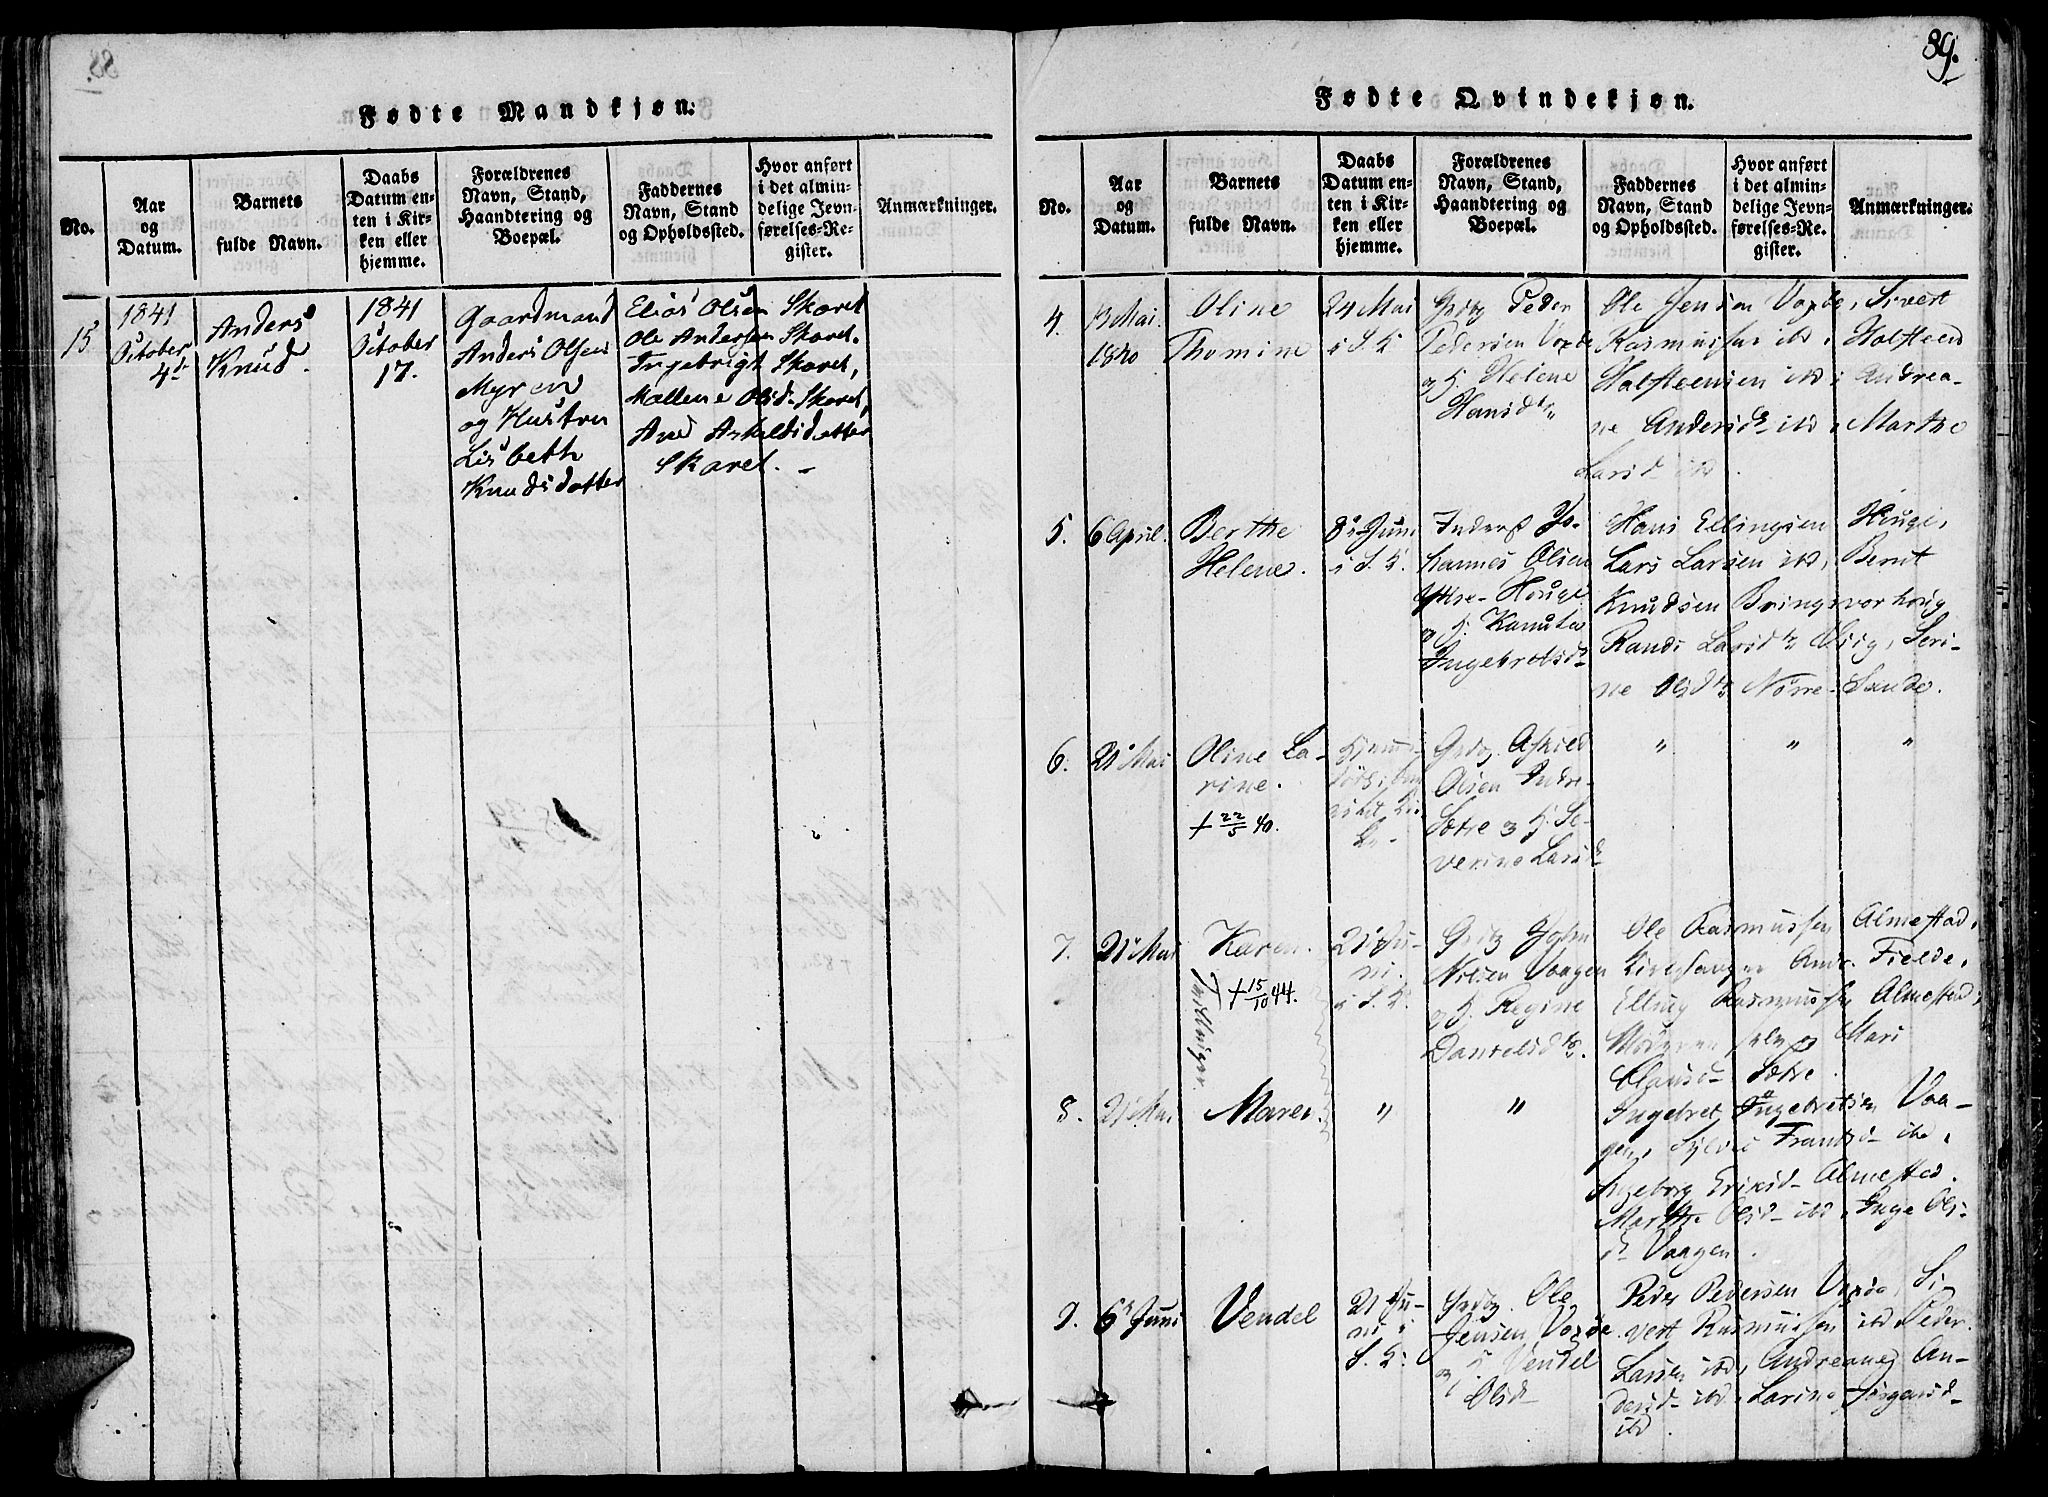 88.
Fødte Mandkjøn.
No.
Aar
og
Datum.
Barnets
fulde Navn.
Daabs
Datum en-
ten i Kir-
ken eller
hjemme.
Forældrenes
Navn, Stand,
Haandtering og
Boepæl.
Faddernes
Navn, Stand
og Opholdssted.
Hvor anført
i det almin-
delige Jevn-
førelses-Re-
gister.
Anmærkninger.
15
1841
October
4de
Anders
Knud.
1841
October
17.
Gaardmand
Anders Olsen
Myren
og Hustru
Lisbeth
Knudsdatter
Elias Olsen Skaret
Ole Andersen Skaret.
Ingebrigt Skaret,
Mallene Olsd. Skaret,
Ane Askeldsdatter
Skaret. -
89.
Fødte Qvindekjøn.
No.
Aar
og
Datum.
Barnets
fulde Navn.
Daabs
Datum en-
ten i Kir-
ken eller
hjemme.
Forældrenes
Navn, Stand,
Haandtering og
Boepæl.
Faddernes
Navn, Stand
og Opholdssted.
Hvor anført
i det almin-
delige Jevn-
førelses-Re-
gister.
Anmærkninger.
4.
13 Mai
1840
Oline
Thomine
24 Mai
i S. K
Peder
Pedersen Voxöe
og H. Helene
Hansdtr
Ole Jensen Voxöe, Sivert
Rasmussen ibd, Holsteen
Holsteensen ibd, Andrea-
ne Andersdr ibd, Marthe
Larsd ibd.
5.
6 April.
Berthe
Helene.
8de Juni
i S. K.
Inderst Jo-
hannes Olsen
Ytre-Houge
og H. Kanute
Ingebretsdr
Hans Ellingsen Houge,
Lars Larsen ibd, Bernt
Knudsen Bringsvorhoug
Randi Larsdtr Ösig, Seri-
ne Olsdtr Nörre-Sande.
6.
21 Mai
Oline La-
rine.
+ 22/5 40.
Askild
Olsen Indre-
Sætre og H. Se-
verine Larsdr
"
"
"
7.
21 Mai
Karen.
+ 15/10 44.
Tvillinger.
21 Ju-
ni.
i S. K.
John
Nilsen Vaagen
og H. Regine
Danielsdtr.
Ole Rasmussen Almestad,
Kirkesanger And. Fielde,
Elling Rasmussen Almestad,
Moderen selv og Mari
Clausd Sætre.
8.
21 Mai
Maren.
"
"
Ingebret Ingebretsen Vaa-
gen, Sylvi Frantsd ibd,
Ingeborg Eriksd Almestad.
Marthe Olsd ibd, Inge Ols-
dr Vaagen.
9.
6 Juni
Vendel
21 Ju-
ni i
S. K.
Ole
Jensen Voxöe
og H. Vendel
Olsd
Peder Pedersen Voxöe, Si-
vert Rasmussen ibd, Peder
Larsen ibd, Andreane An-
dersd ibd, Larine Jörgensd
ibd